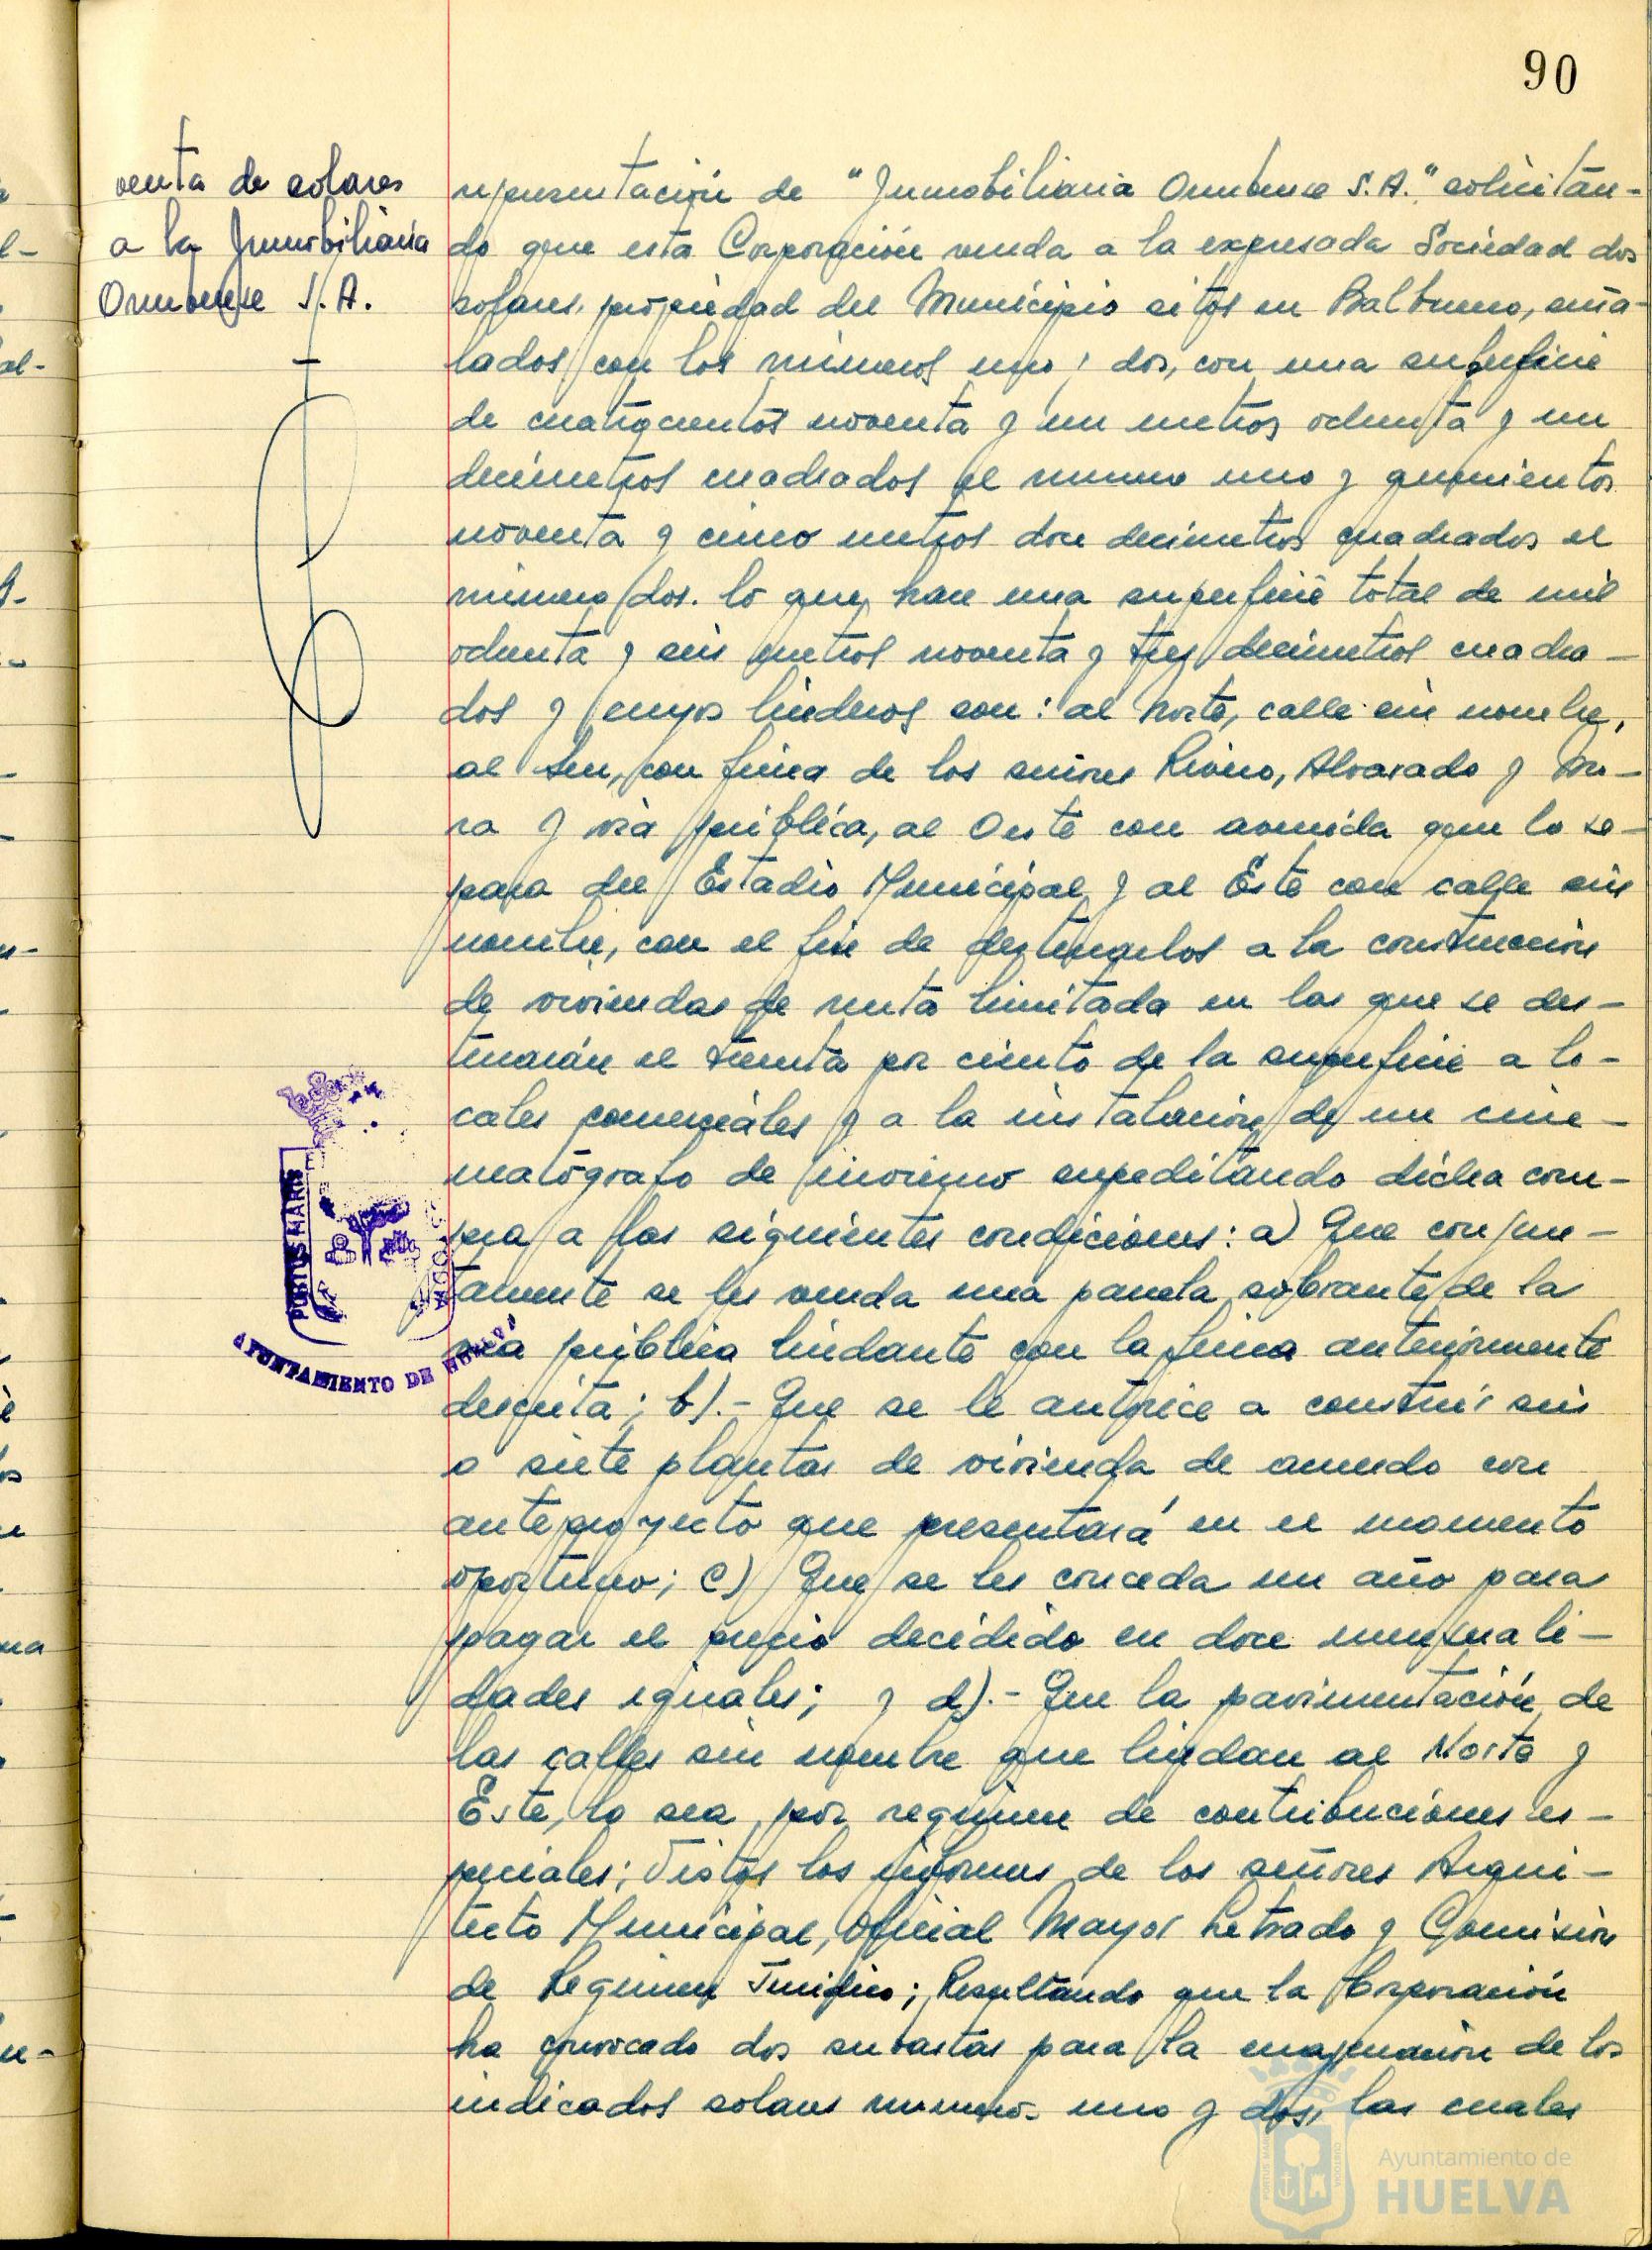 90
venta de solares
a la Inmobiliaria
Onubense S.A.
representación de "Inmobiliaria Onubense S.A." solicitan-
do que esta Corporación venda a la expresada Sociedad dos
solares, propiedad del Municipio sitos en Balbueno, seña-
lados con los números uno y dos, con una superficie
de cuatrocientos noventa y un metros ochenta y un
decímetros cuadrados el numero uno y quinientos
noventa y cinco metros doce decímetros cuadrados el
número dos. lo que hace una superficie total de mil
ochenta y seis metros noventa y tres decímetros cuadra-
dos y cuyos linderos son: al Norte, calle sin nombre,
al Sur, con finca de los señores Rivero, Alvarado y Mo-
ra y vía pública, al Oeste con avenida que lo se-
para del Estadio Municipal y al Este con calle sin
nombre, con el fin de destinarlos a la construcción
de viviendas de renta limitada en las que se des-
tinarán el treinta por ciento de la superficie a lo-
cales comerciales y a la instalación de un cine-
matógrafo de invierno supeditando dicha com-
pra a las siguientes condiciones: a) Que conjun-
tamente se les venda una parcela sobrante de la
vía pública lindante con la finca anteriormente
descrita; b).- Que se le autorice a construir seis
o siete plantas de vivienda de acuerdo con
anteproyecto que presentará en el momento
oportuno; c) Que se les conceda un año para
pagar el precio decidido en doce mensuali-
dades iguales; y d).- Que la pavimentación de
las calles sin nombre que lindan al Norte y
Este, lo sea por regimen de contribuciones es-
peciales; Vistos los informes de los señores Arqui-
tecto Municipal, Oficial Mayor Letrado y Comisión
de Regimen Jurídico; Resultando que la Corporación
ha convocado dos subastas para la enajenación de los
indicados solares numeros uno y dos, las cuales
PORTUS MARIS
AYUNTAMIENTO DE HUELVA
Ayuntamiento de
HUELVA